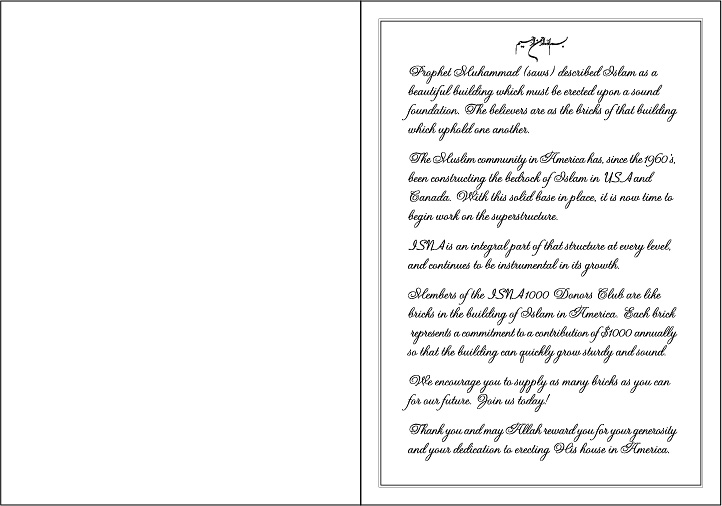 Prophet Muhammad (saws) described Islam as a
beautiful building which must be erected upon a sound
foundation. The believers are as the bricks of that building
which uphold one another.
The Muslim community in America has, since the 1960's,
been constructing the bedrock of Islam in USA and
Canada. With this solid base in place, it is now time to
begin work on the superstructure.
ISNA is an integral part of that structure at every level,
and continues to be instrumental in its growth.
Members of the ISNA 1000 Donors Club are like
bricks in the building of Islam in America. Each brick
represents a commitment to a contribution of $1000 annually
so that the building can quickly grow sturdy and sound.
We encourage you to supply as many bricks as you can
for our future. Join us today!
Thank you and may Allah reward you for your generosity
and your dedication to erecting His house in America.